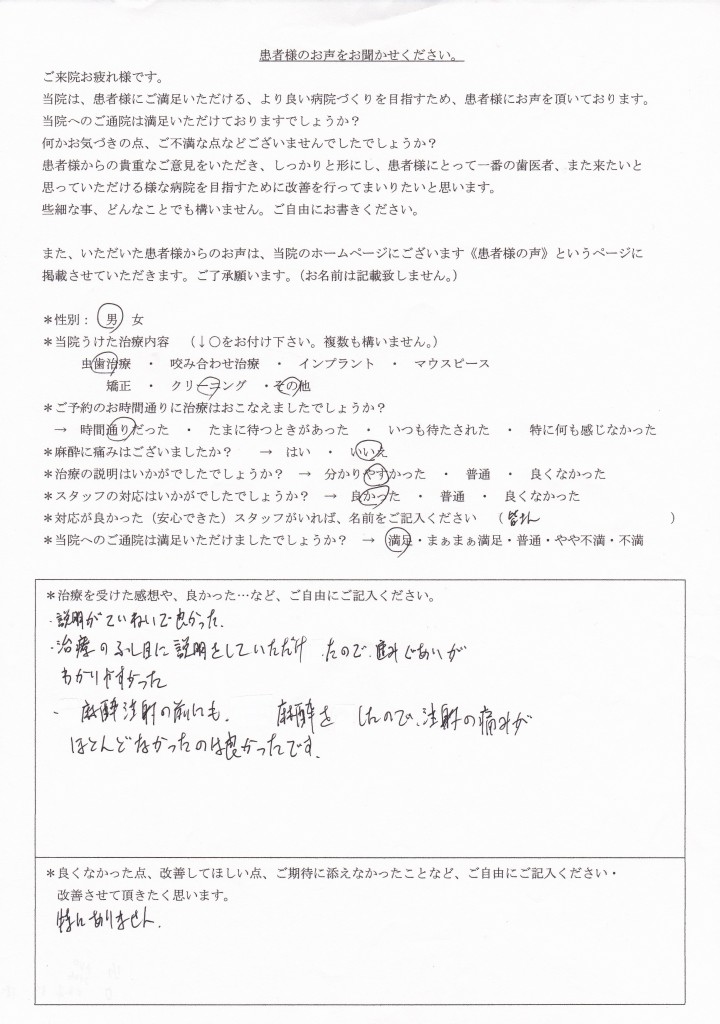 患者様のお声をお聞かせください。
ご来院お疲れ様です。
当院は、患者様にご満足いただける、より良い病院づくりを目指すため、患者様にお声を頂いております。
当院へのご通院は満足いただけておりますでしょうか？
何かお気づきの点、ご不満な点などございませんでしたでしょうか？
患者様からの貴重なご意見をいただき、しっかりと形にし、患者様にとって一番の歯医者、また来たいと
思っていただける様な病院を目指すために改善を行ってまいりたいと思います。
些細な事、どんなことでも構いません。ご自由にお書きください。
また、いただいた患者様からのお声は、当院のホームページにございます《患者様の声》というページに
掲載させていただきます。ご了承願います。（お名前は記載致しません。）
＊性別： 男 女
＊当院うけた治療内容 （↓○をお付け下さい。複数も構いません。）
虫歯治療 ・ 咬み合わせ治療 ・ インプラント ・ マウスピース
矯正 ・ クリーニング ・その他
＊ご予約のお時間通りに治療はおこなえましたでしょうか？
→ 時間通りだった ・ たまに待つときがあった ・ いつも待たされた ・ 特に何も感じなかった
＊麻酔に痛みはございましたか？ → はい ・ いいえ
＊治療の説明はいかがでしたでしょうか？ → 分かりやすかった ・ 普通 ・ 良くなかった
＊スタッフの対応はいかがでしたでしょうか？ → 良かった ・ 普通 ・ 良くなかった
＊対応が良かった（安心できた）スタッフがいれば、名前をご記入ください （皆さん ）
＊当院へのご通院は満足いただけましたでしょうか？ → 満足・まぁまぁ満足・普通・やや不満・不満
＊治療を受けた感想や、良かった…など、ご自由にご記入ください。
・説明がていねいで良かった.
・治療のふし目に説明をしていただけ たので、ぐあいが
わかりやすかった
・ 麻酔注射の前にも、 麻酔を したので、注射の痛みが
ほとんどなかったのは良かったです.
＊良くなかった点、改善してほしい点、ご期待に添えなかったことなど、ご自由にご記入ください・
改善させて頂きたく思います。
特にありません.